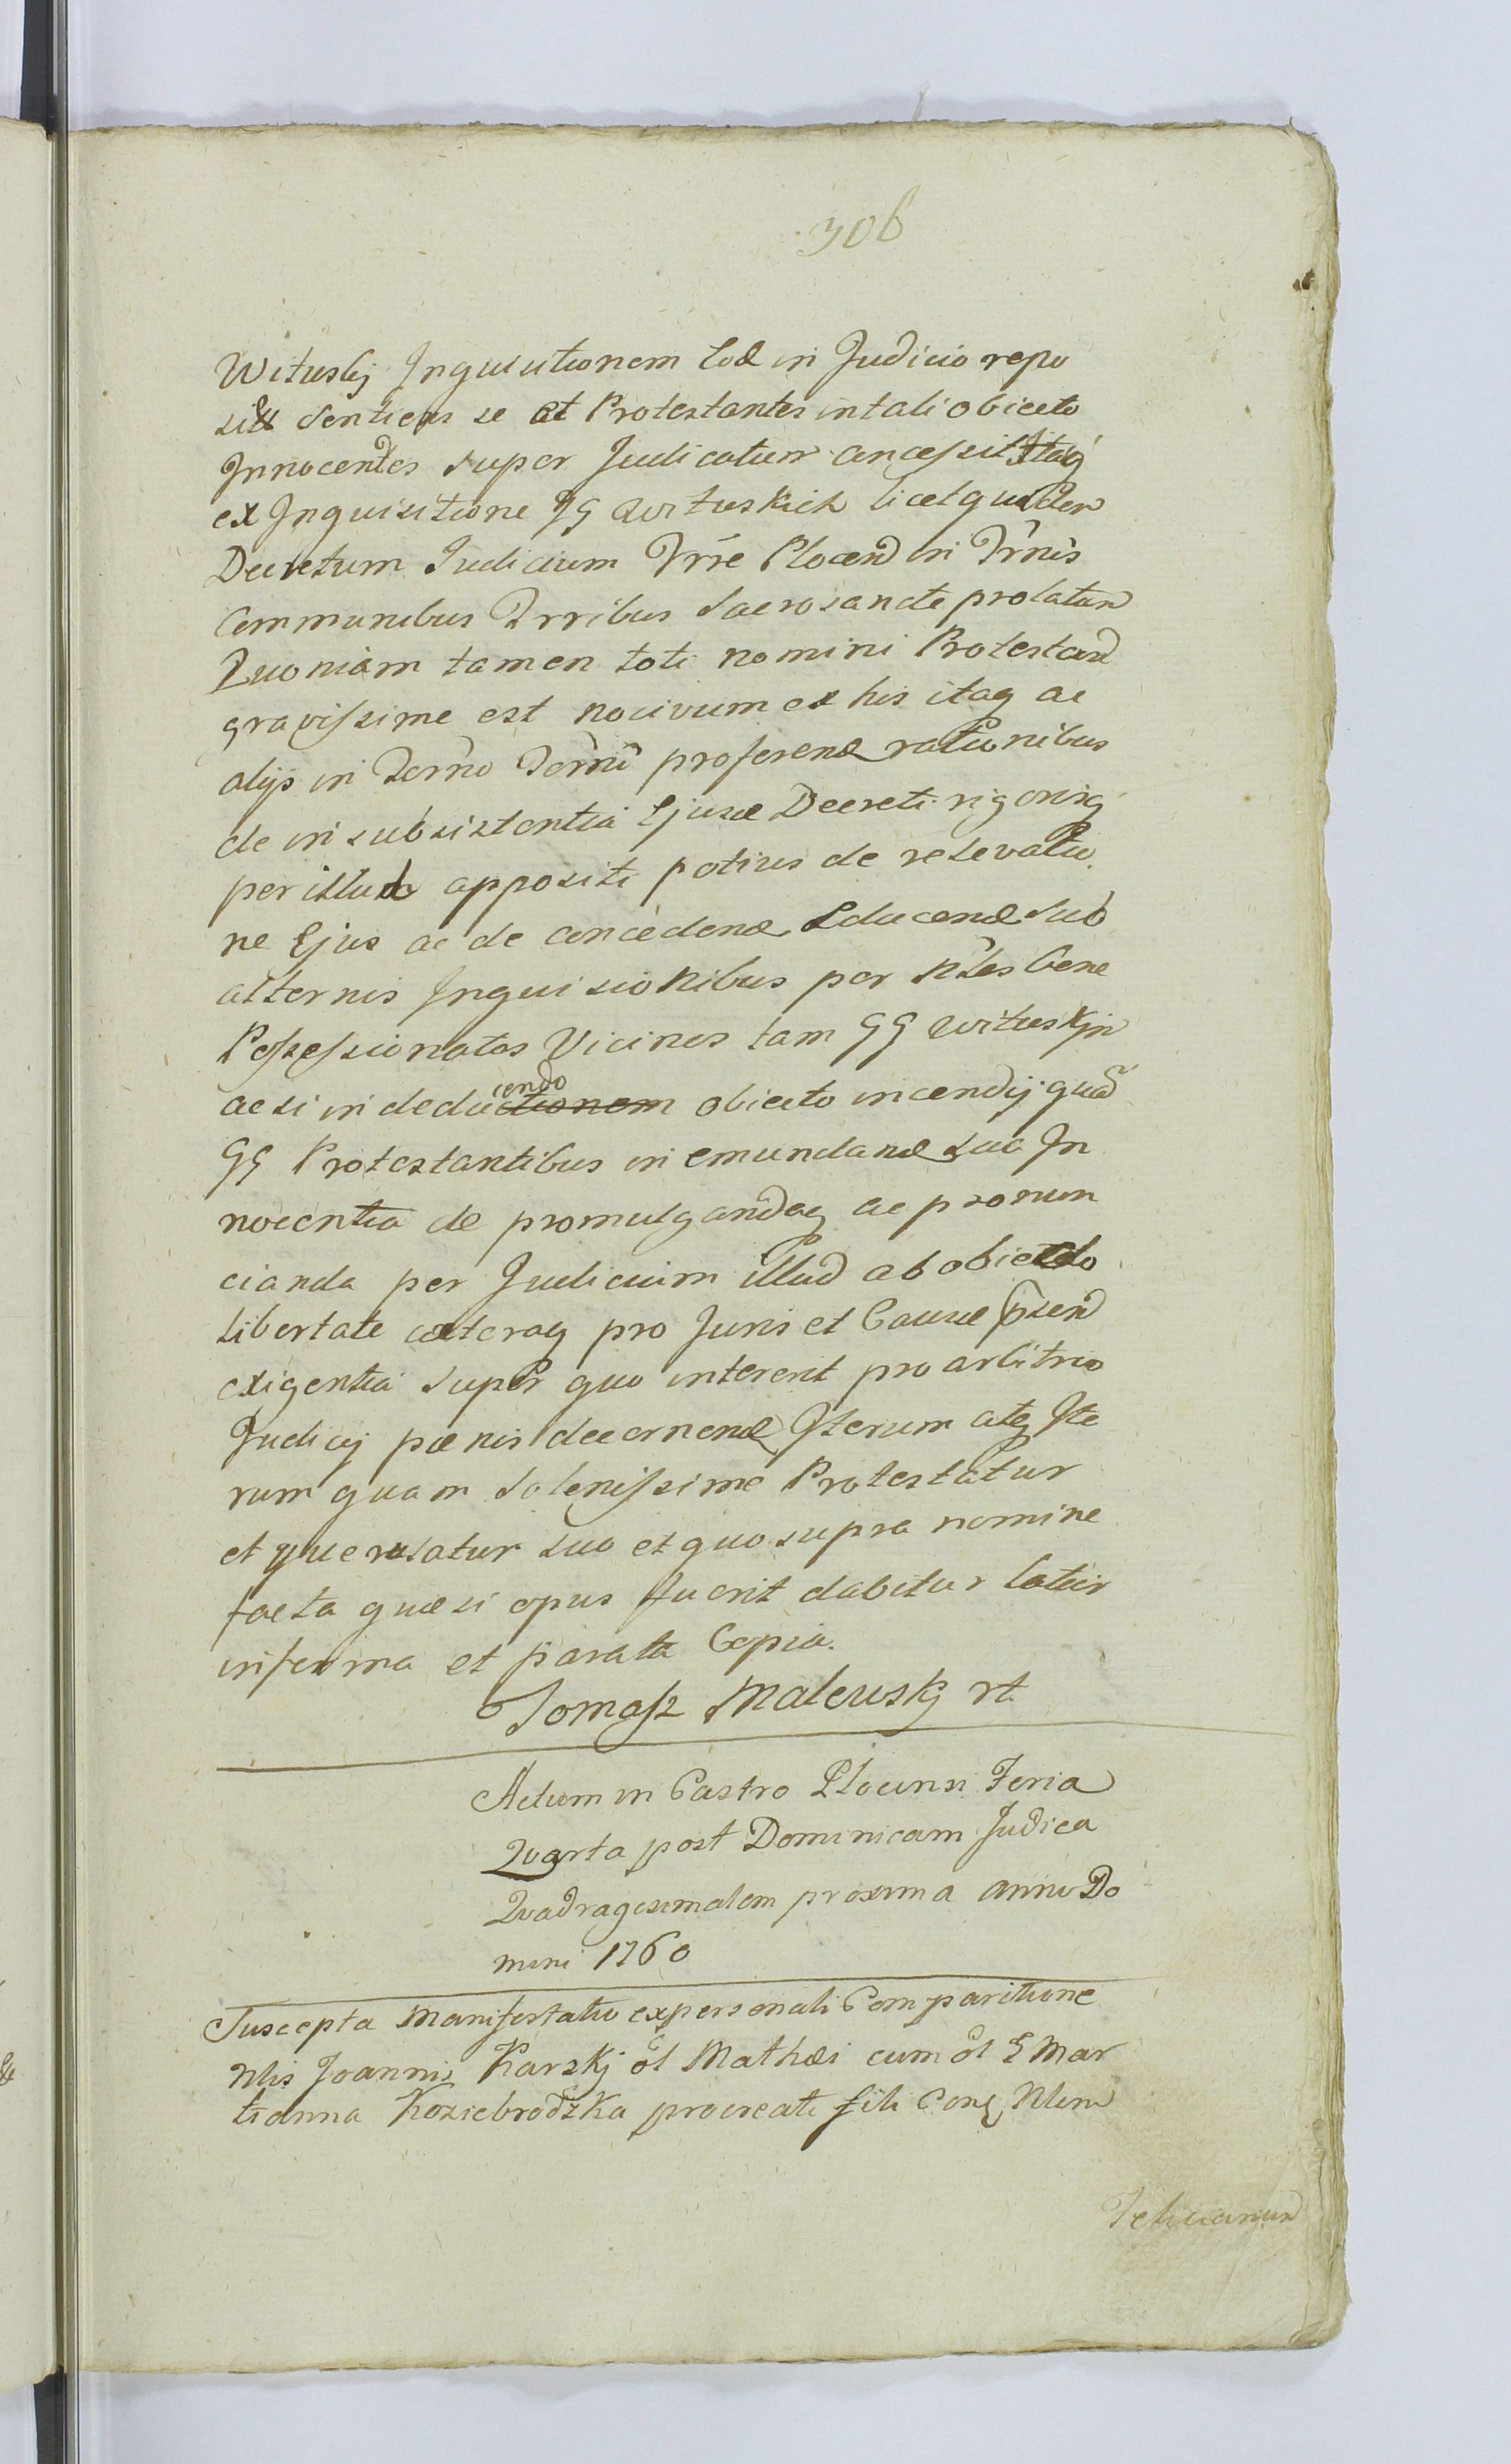 306
Wituskj Inquisitionem Eod in Judicio repo
sit sentiens se et Protestantes in tali obiecto
Innocentes super Judicatum concessit Itaq
ex Inquisitione GG Wituskich licet quidem
Decretum Judicium Trre Plocen in Trnis
Communibus Trribus Sacrosancte prolatum
Quoniam tamen toti nomini Protestan
gravissime est nocivum ex his itaq ac
alijs in Terno Terni proferend rationibus
de in subsistentia Ejusd Decreti rigorisq
per illud appositi potius de relevatio
ne Ejus ac de concedend Educend sub
alternis Inquisicionibus per Nles bene
Possessionatos Vicinos tam GG Wituskjn
ac si in deductionem cendo obiecto incendij quod
GG Protestantibus in emundand sua In
nocentia de promulgandaq ac pronun
cianda per Judicium illud ab obiecto
libertate caeteraq pro Juris et Causae psen
exigentia super quo interent pro arbitrio
Judicij paenis decernend Iterum atq Ite
rum quam Solenissime Protestatur
et querulatur suo et quo supra nomine
facta quae si opus fuerit dabitur latior
in forma et parata Copia.
Tomasz Malewskj rt.
Actum in Castro Plocensi Feria
Quarta post Dominicam Judica
Quadragesimalem proxima anno Do
mini 1760
Suscepta Manifestatio ex personali Comparitione
Nlis Joannis Karskj ol Mathaei cum ol G Mar
tianna Koziebrodzka procreati fili Conq Nlem
Felicianum